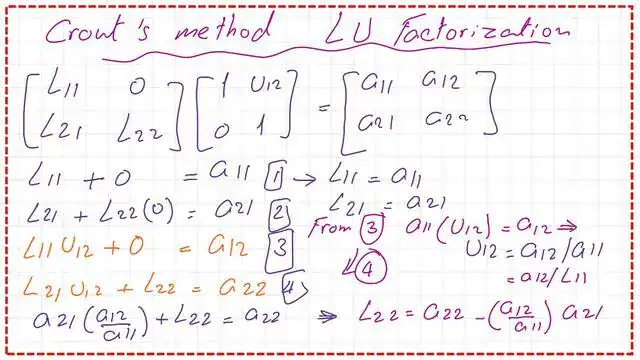 Crout's method LU Factorization
[L11 0] [1 U12] = [a11 a12]
[L21 L22] [0 1] [a21 a22]
L11 + 0 = a11 [1] → L11 = a11
L21 + L22(0) = a21 [2] L21 = a21
From [3] a11(U12) = a12 ⇒
L11 U12 + 0 = a12 [3] U12 = a12/a11
(4) = a12/L11
L21 U12 + L22 = a22 [4]
a21(a12/a11) + L22 = a22 ⇒ L22 = a22 - (a12/a11) a21